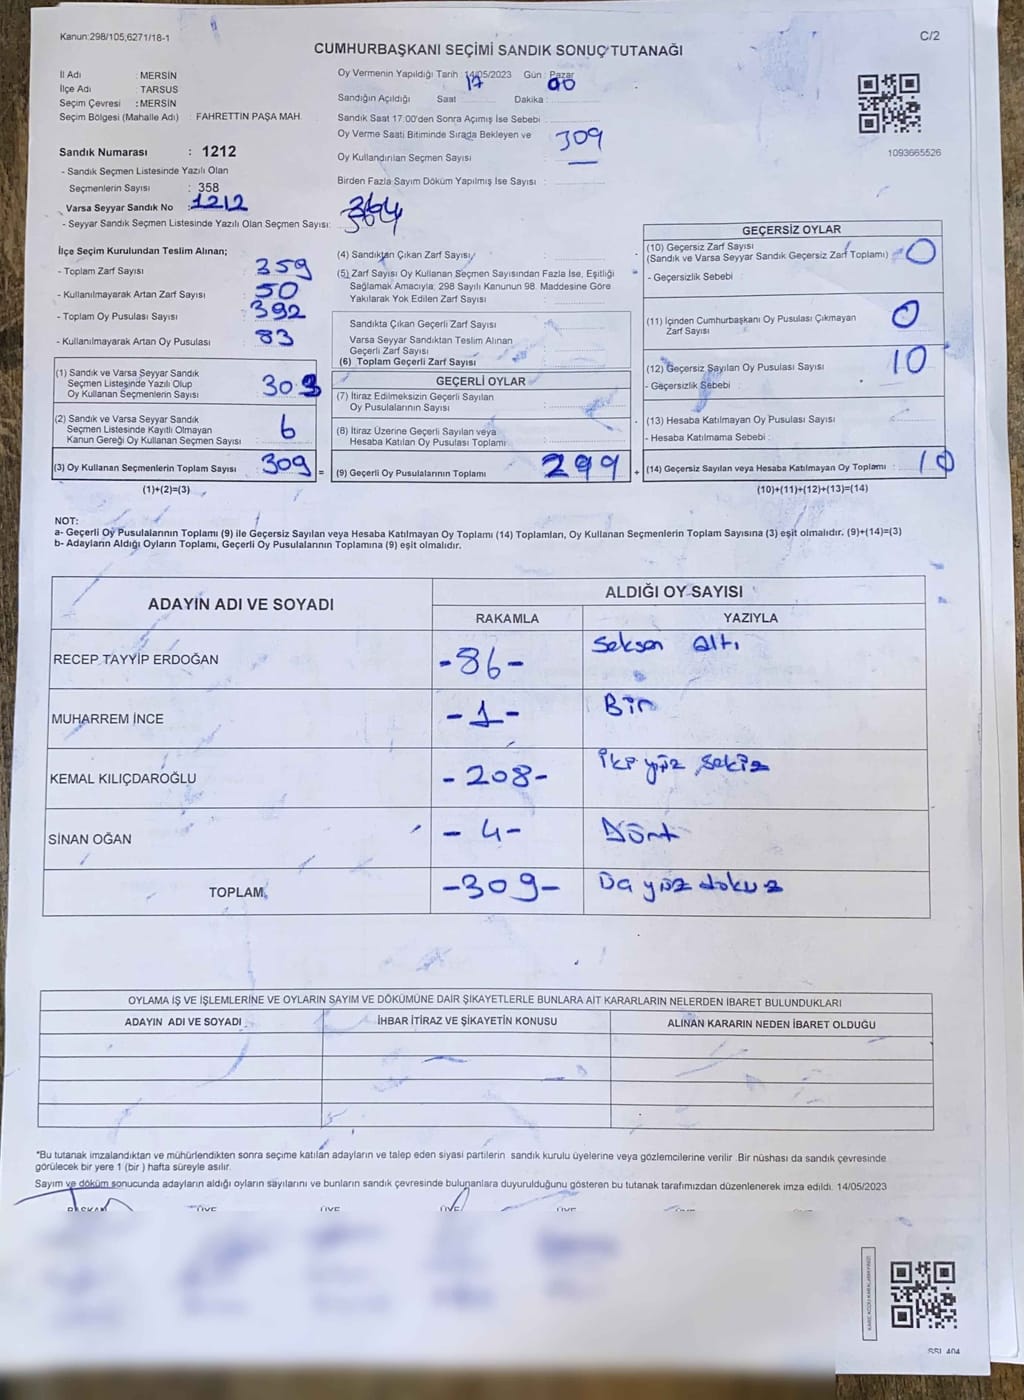 Kanun:298/105,6271/18-1
C/2
CUMHURBAŞKANI SEÇİMİ SANDIK SONUÇ TUTANAĞI
İl Adı : MERSİN
İlçe Adı : TARSUS
Seçim Çevresi : MERSİN
Seçim Bölgesi (Mahalle Adı) : FAHRETTİN PAŞA MAH.
Oy Vermenin Yapıldığı Tarih 14/05/2023 Gün : Pazar
Sandığın Açıldığı Saat 17 Dakika : 00
Sandık Saat 17:00'den Sonra Açımış İse Sebebi :
Oy Verme Saati Bitiminde Sırada Bekleyen ve
Oy Kullandırılan Seçmen Sayısı 309
Birden Fazla Sayım Döküm Yapılmış İse Sayısı :
1093665526
Sandık Numarası : 1212
- Sandık Seçmen Listesinde Yazılı Olan
Seçmenlerin Sayısı : 358
Varsa Seyyar Sandık No : 1212
- Seyyar Sandık Seçmen Listesinde Yazılı Olan Seçmen Sayısı:
İlçe Seçim Kurulundan Teslim Alınan;
- Toplam Zarf Sayısı 359
- Kullanılmayarak Artan Zarf Sayısı 50
- Toplam Oy Pusulası Sayısı 392
- Kullanılmayarak Artan Oy Pusulası 83
(1) Sandık ve Varsa Seyyar Sandık
Seçmen Listesinde Yazılı Olup
Oy Kullanan Seçmenlerin Sayısı 303
(2) Sandık ve Varsa Seyyar Sandık
Seçmen Listesinde Kayıtlı Olmayan
Kanun Gereği Oy Kullanan Seçmen Sayısı 6
(3) Oy Kullanan Seçmenlerin Toplam Sayısı 309 =
(1)+(2)=(3)
(4) Sandıktan Çıkan Zarf Sayısı
(5) Zarf Sayısı Oy Kullanan Seçmen Sayısından Fazla İse, Eşitliği
Sağlamak Amacıyla; 298 Sayılı Kanunun 98. Maddesine Göre
Yakılarak Yok Edilen Zarf Sayısı
Sandıkta Çıkan Geçerli Zarf Sayısı
Varsa Seyyar Sandıktan Teslim Alınan
Geçerli Zarf Sayısı
(6) Toplam Geçerli Zarf Sayısı
GEÇERLİ OYLAR
(7) İtiraz Edilmeksizin Geçerli Sayılan
Oy Pusulalarının Sayısı
(8) İtiraz Üzerine Geçerli Sayılan veya
Hesaba Katılan Oy Pusulası Toplamı
(9) Geçerli Oy Pusulalarının Toplamı 299 +
GEÇERSİZ OYLAR
(10) Geçersiz Zarf Sayısı
(Sandık ve Varsa Seyyar Sandık Geçersiz Zarf Toplamı) 0
- Geçersizlik Sebebi :
(11) İçinden Cumhurbaşkanı Oy Pusulası Çıkmayan
Zarf Sayısı 0
(12) Geçersiz Sayılan Oy Pusulası Sayısı 10
- Geçersizlik Sebebi :
(13) Hesaba Katılmayan Oy Pusulası Sayısı
- Hesaba Katılmama Sebebi :
(14) Geçersiz Sayılan veya Hesaba Katılmayan Oy Toplamı : 10
(10)+(11)+(12)+(13)=(14)
NOT:
a- Geçerli Oy Pusulalarının Toplamı (9) ile Geçersiz Sayılan veya Hesaba Katılmayan Oy Toplamı (14) Toplamları, Oy Kullanan Seçmenlerin Toplam Sayısına (3) eşit olmalıdır. (9)+(14)=(3)
b- Adayların Aldığı Oyların Toplamı, Geçerli Oy Pusulalarının Toplamına (9) eşit olmalıdır.
ADAYIN ADI VE SOYADI
ALDIĞI OY SAYISI
RAKAMLA YAZIYLA
RECEP TAYYİP ERDOĞAN -86- Seksen altı
MUHARREM İNCE -1- Bir
KEMAL KILIÇDAROĞLU -208- İki yüz sekiz
SİNAN OĞAN -4- Dört
TOPLAM -309- yüz dokuz
OYLAMA İŞ VE İŞLEMLERİNE VE OYLARIN SAYIM VE DÖKÜMÜNE DAİR ŞİKAYETLERLE BUNLARA AİT KARARLARIN NELERDEN İBARET BULUNDUKLARI
ADAYIN ADI VE SOYADI İHBAR İTİRAZ VE ŞİKAYETİN KONUSU ALINAN KARARIN NEDEN İBARET OLDUĞU
*Bu tutanak imzalandıktan ve mühürlendikten sonra seçime katılan adayların ve talep eden siyasi partilerin sandık kurulu üyelerine veya gözlemcilerine verilir .Bir nüshası da sandık çevresinde
görülecek bir yere 1 (bir ) hafta süreyle asılır.
Sayım ve döküm sonucunda adayların aldığı oyların sayılarını ve bunların sandık çevresinde bulunanlara duyurulduğunu gösteren bu tutanak tarafımızdan düzenlenerek imza edildi. 14/05/2023
BAŞKAN ÜYE ÜYE ÜYE ÜYE